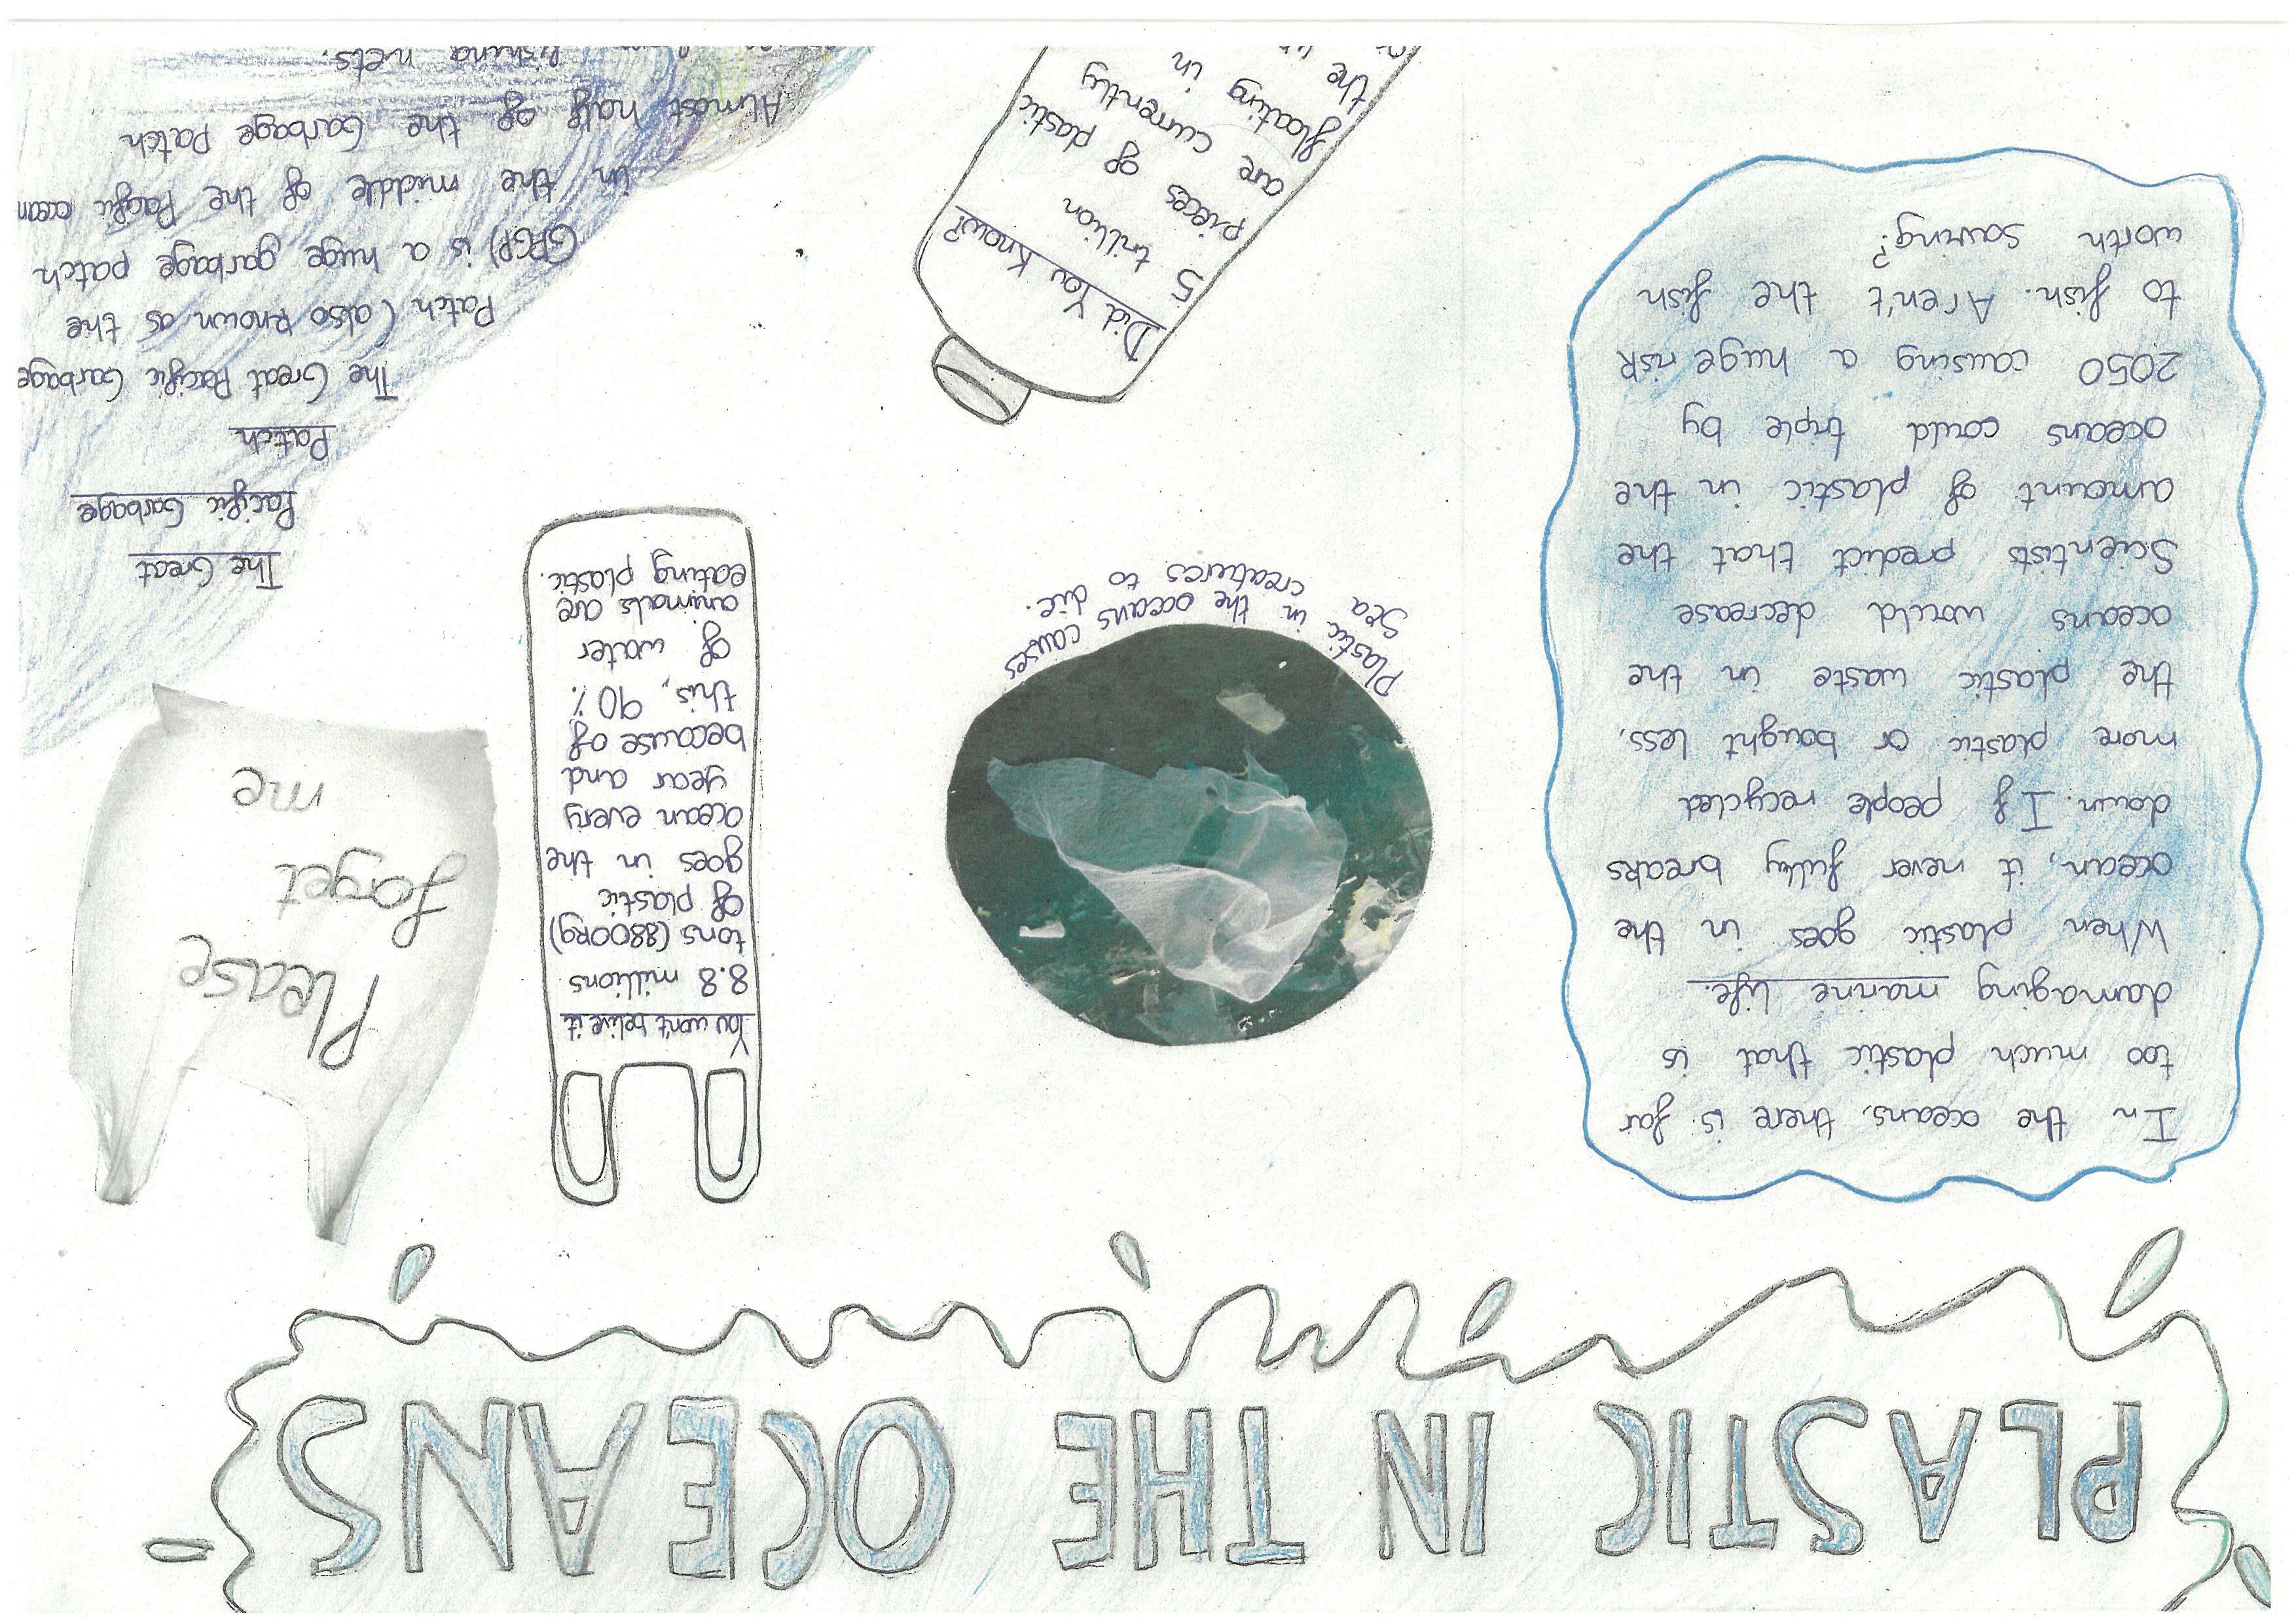 PLASTIC IN THE OCEANS
In the oceans, there is far
too much plastic that is
damaging marine life.
When plastic goes in the
ocean, it never fully breaks
down. If people recycled
more plastic or bought less,
the plastic waste in the
oceans would decrease
Scientists predict that the
amount of plastic in the
oceans could triple by
2050 causing a huge risk
to fish. Aren't the fish
worth saving?
Plastic in the oceans causes
sea creatures to die.
Did You Know?
5 trillion
pieces of plastic
are currently
floating in
the
You won't belive it
8.8 millions
tons (8800kg)
of plastic
goes in the
ocean every
year and
because of
this, 90%
of water
animals are
eating plastic.
Please
forget
me
The Great
Pacific Garbage
Patch
The Great Pacific Garbage
Patch (also known as the
GPGP) is a huge garbage patch
in the middle of the Pacific ocean
Almost half of the Garbage Patch
fishing nets.